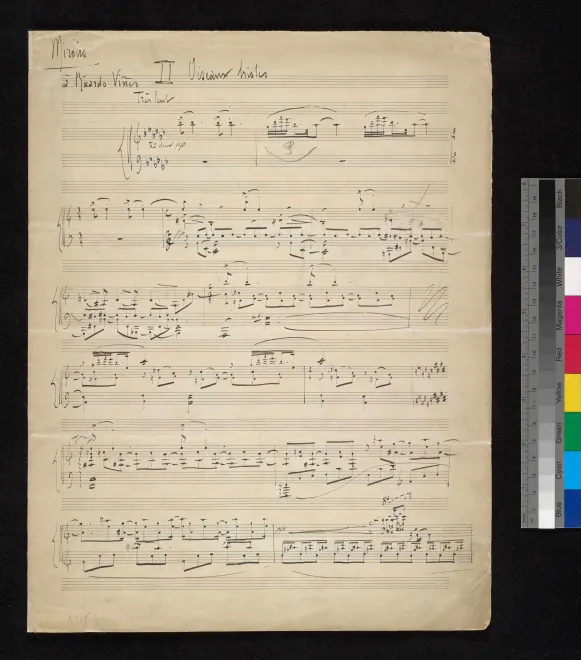 Miroirs
à Ricardo Viñes II Oiseaux tristes
Très lent
Black
3/Color
White
Magenta
Red
Yellow
Green
Cyan
Blue